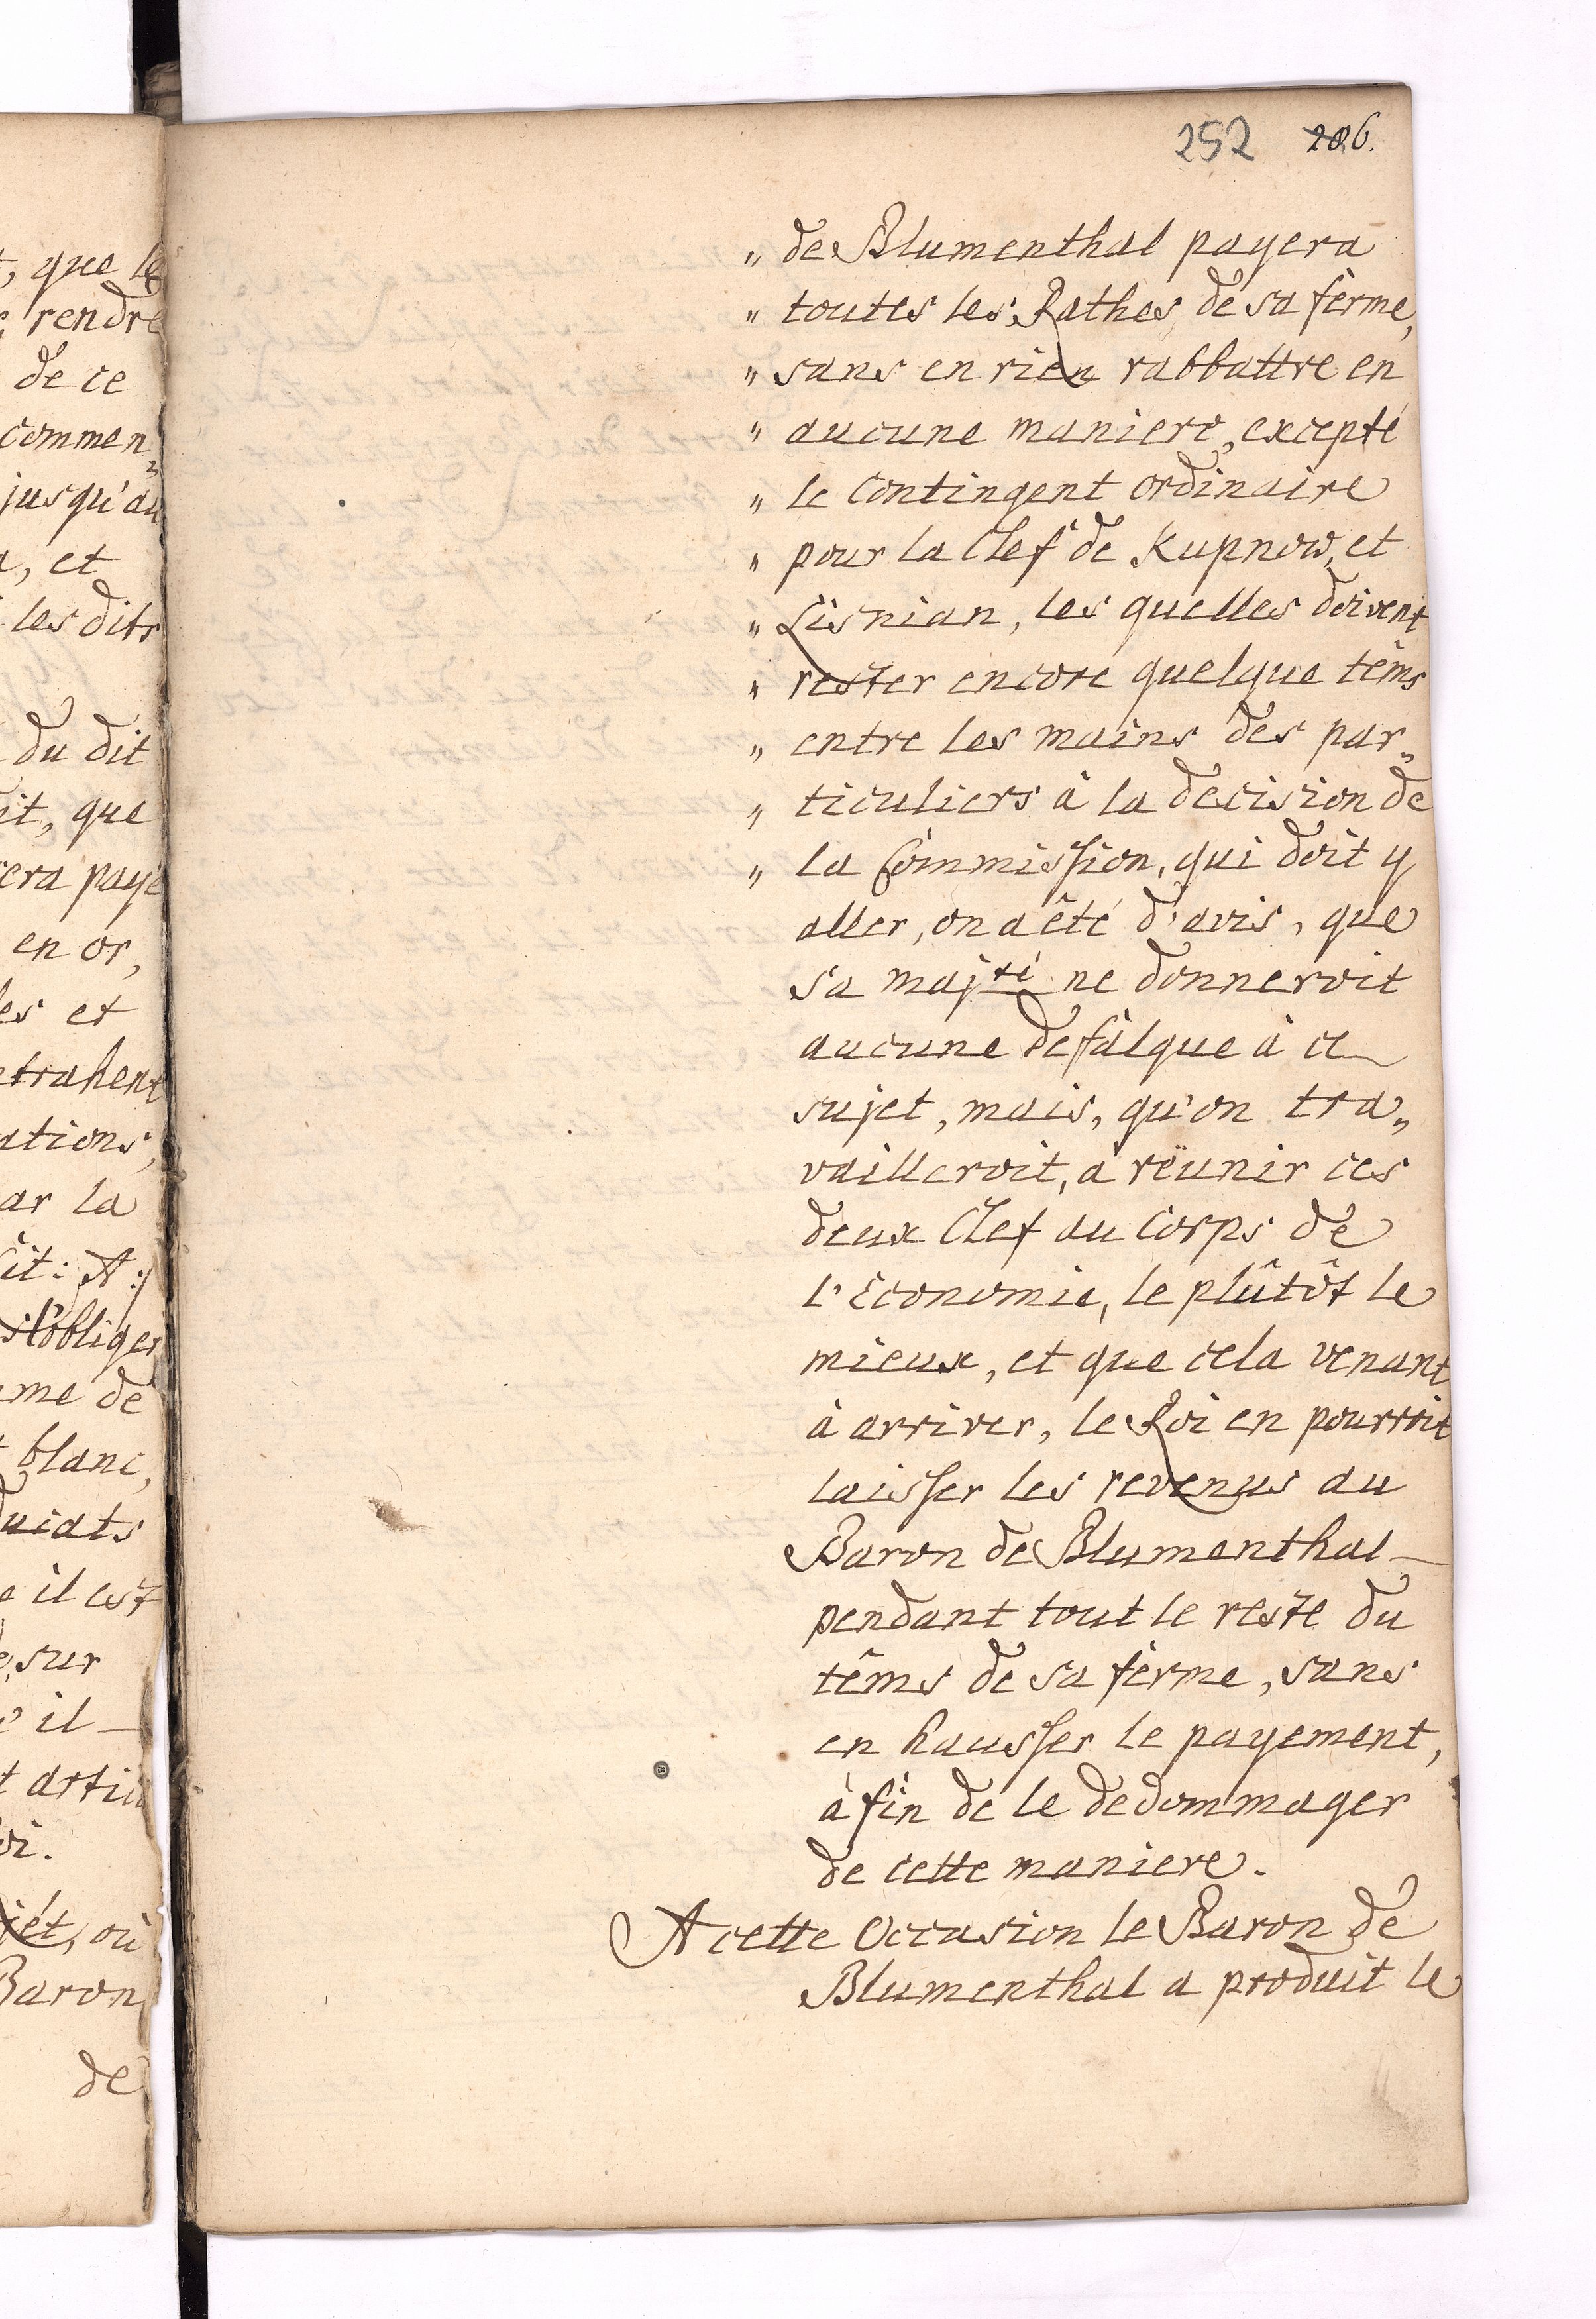 t, que le
rendre
de ce
commen„
jusqu'au
, et
les dits
du dit
it, que
era payé
en or,
les et
trahent
ations,
ar la
ît: A:/
s'obliger
me de
blanc,
ucats
e il est
, sur
il_
t articu
oi.
jét, où
Baron
de
252 206.
„ de Blumenthal payera
„ toutes les Rathes de sa fèrme,
„ sans en rien rabbattre en
„ aucune maniere, excepté
„ le Contingent ordinaire
„ pour la Clef de Kupnow, et
„ Lisnian, les quelles doivent
„ rester encore quelque têms
„ entre les mains des par„
„ ticuliers à la decision de
„ la Commission, qui doit y
aller, on a êté d'avis, que
sa maj.té ne donneroit
aucune defalque à ce_
sujet, mais, qu'on tra„
vailleroit, à rëunir ces
deux Clef au Corps de
l'Economie, le plûtôt le
mieux, et que cela venant
à arriver, le Roi en pourroit
laisser les revenus au
Baron de Blumenthal_
pendant tout le reste du
têms de sa fèrme, sans
en hausser le payement,
à fin de le dedommager
de cette maniere.
A cette Occasion le Baron de
Blumenthal a produit le